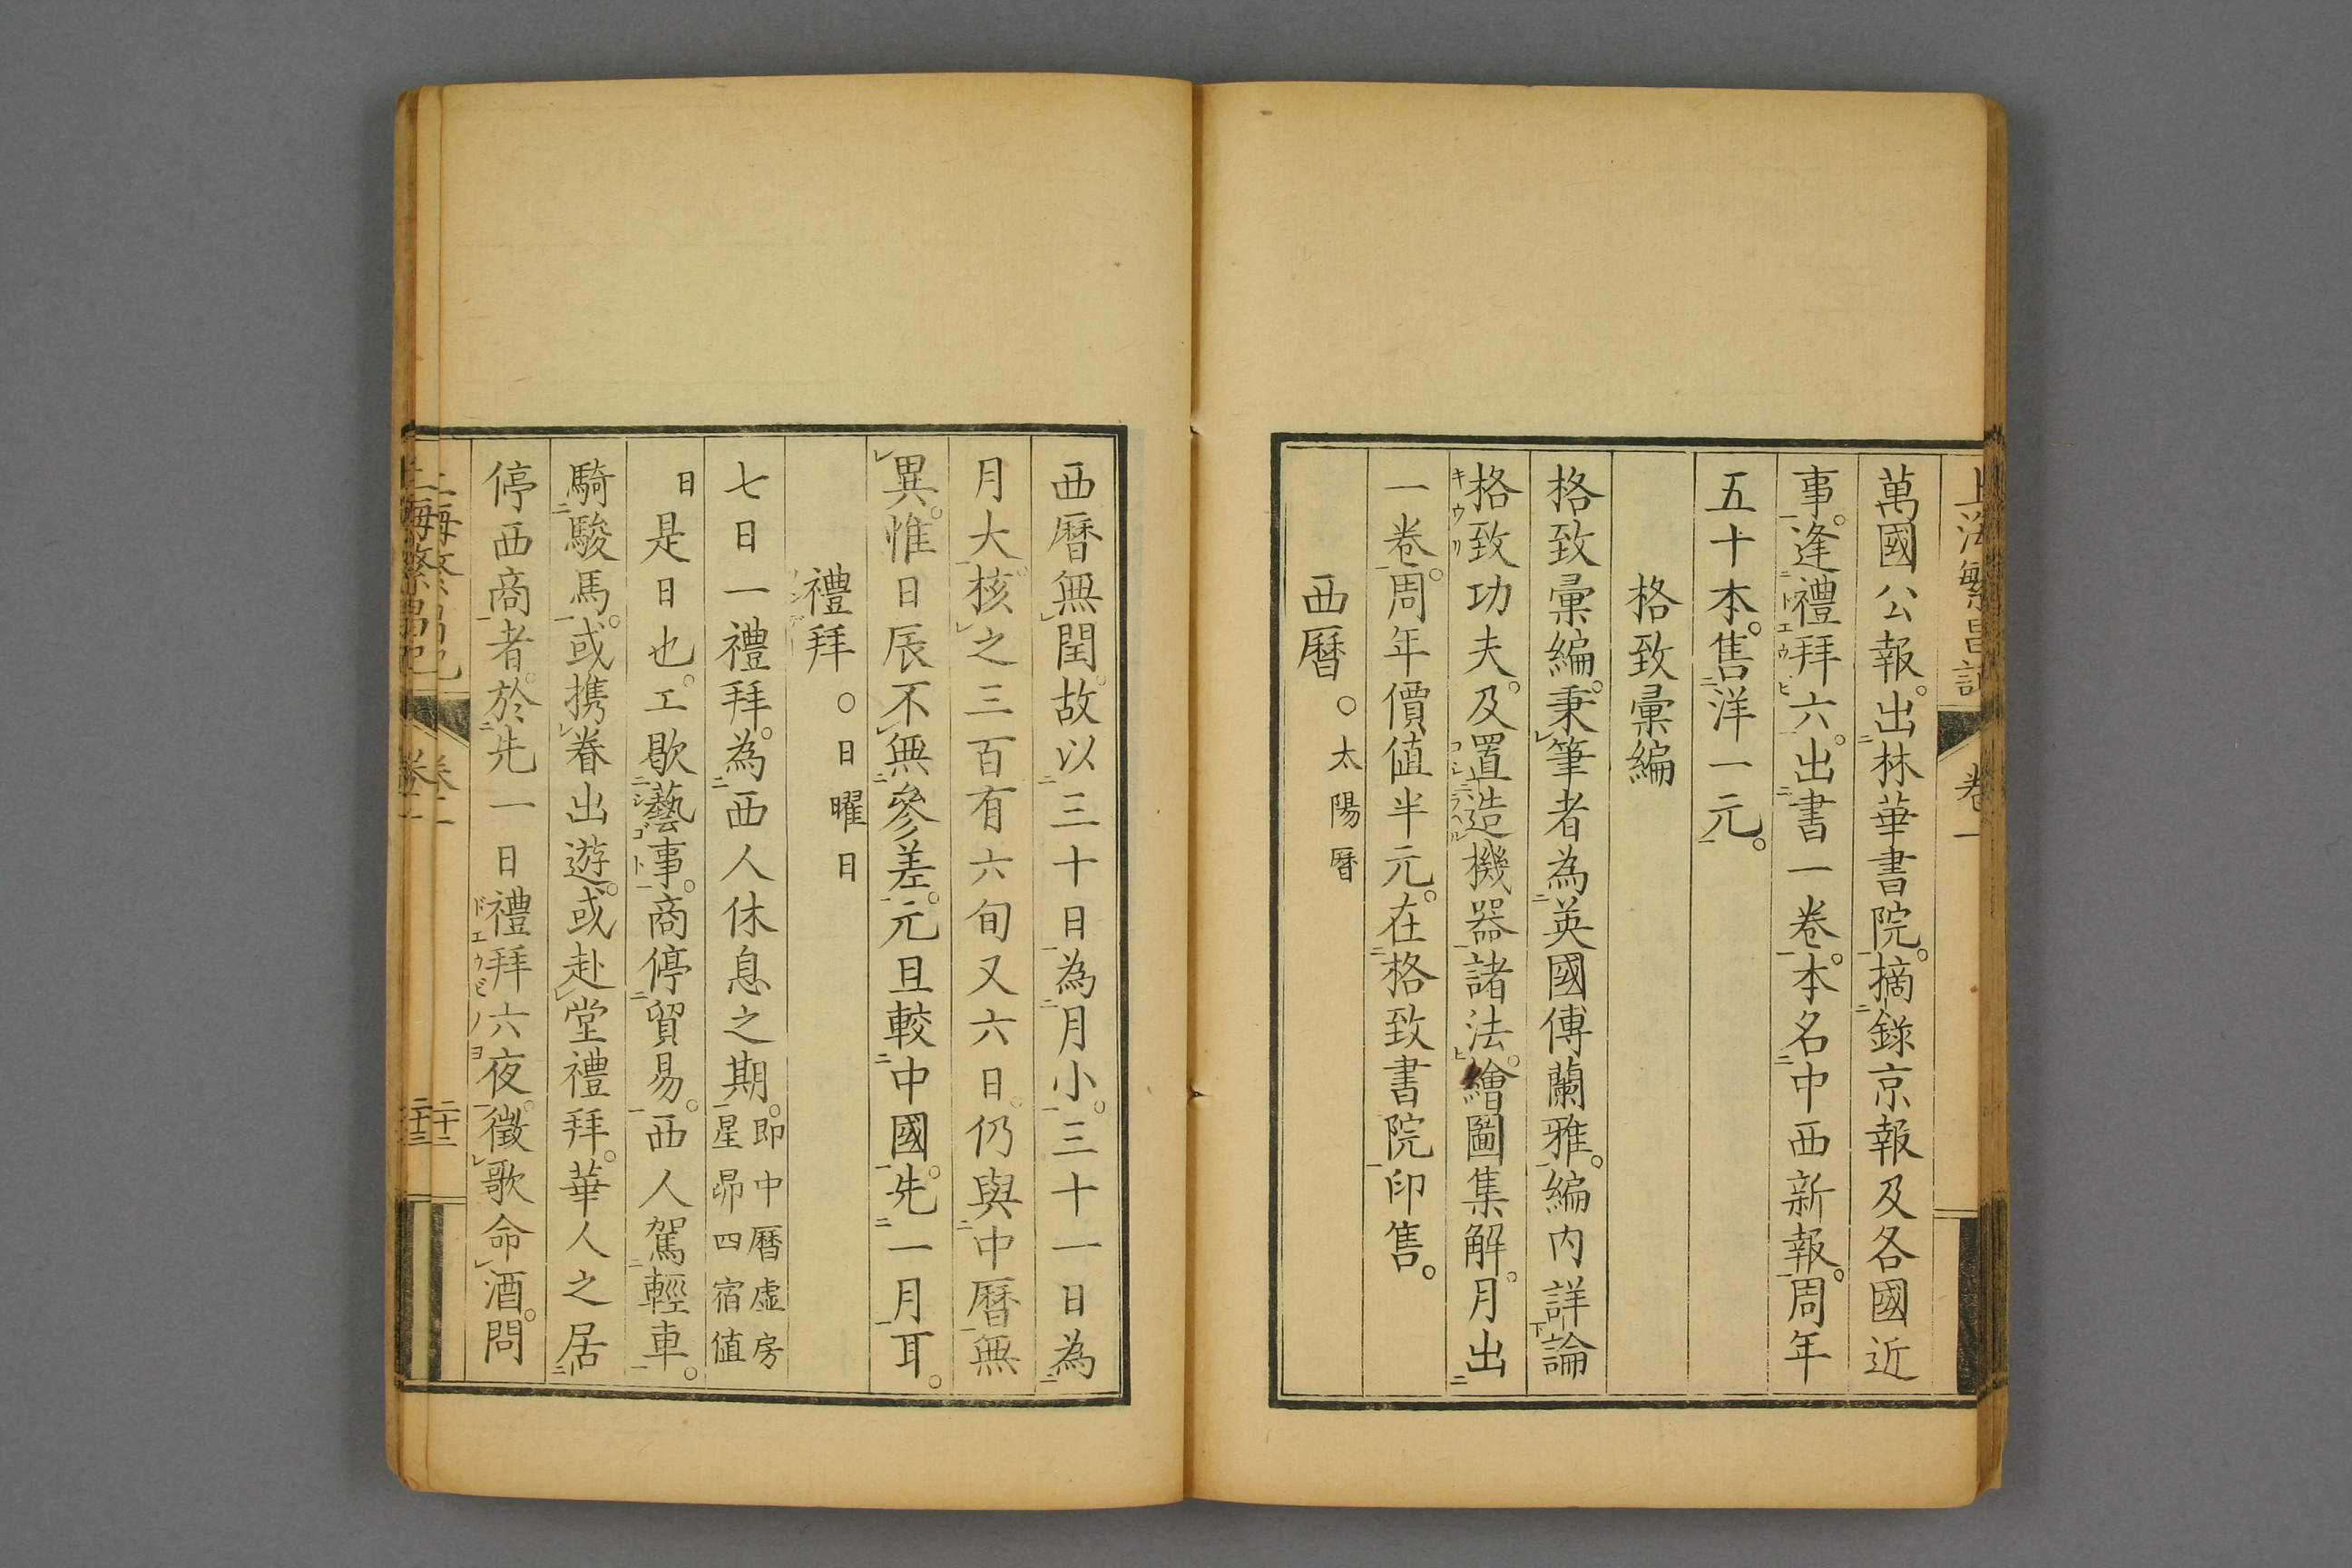 上海繁昌記 卷一
萬國公報。出林華書院。摘錄京報及各國近
事。逢禮拜六。出書一卷。本名中西新報。周年
五十本。售洋一元。
格致彙編
格致彙編。秉筆者為英國傅蘭雅。編内詳論
格致功夫。及置造機器諸法。繪圖集解。月出
一卷。周年價值半元。在格致書院印售。
西曆。太陽曆
西曆無閏。故以三十日為月小。三十一日為
月大。核之三百有六旬又六日。仍與中曆無
異。惟日辰不無參差。元旦較中國。先一月耳。
禮拜。日曜日
七日一禮拜。為西人休息之期。即中曆虛房星昴四宿值
日是日也。工歇藝事。商停貿易。西人駕輕車。
騎駿馬。或携眷出遊。或赴堂禮拜。華人之居
停西商者。於先一日禮拜六夜。徵歌命酒。問
上海繁昌記 卷一 二十二